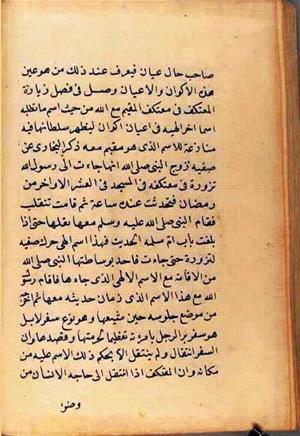 صاحب حال عيان فيعرف عند ذلك من هو عين
هذه الأكوان والاعيان وصل في فصل زيارة
المعتكف في معتكفه المقيم مع الله من حيث اسم ما تطلبه
اسما اخر الهية في اعيان اكوان ليظهر سلطانها فيه
منازعة للاسم الذي هو مقيم معه ذكر البخاري عن
صفيه زوج النبي صلى الله انها جاءت الى رسول الله
تزورة في معتكفه في المسجد في العشر الاواخر من
رمضان فتحدثت عنده ساعة ثم قامت تنقلب
فقام النبي صلى الله عليه وسلم معها يقلبها حتى اذا
بلغت باب ام سلمه الحديث فهذا اسم الهي حرك صفيه
لتزورة حتى جاءت فاخذ بوساطتها النبي صلى الله
من الاقامة مع الاسم الالهي الذي جاء بها فاقام رسول
الله مع هذا الاسم الذي زمان حديثه معها ثم
من موضع جلوسه حين مشيعها وهو نوع سفر لا بل
هو سفر بر الرجل بامرته تعظيما لحرمتها وقصدها وان
السفر انتقال ولم ينتقل الا بحكم ذلك الاسم عليه من
مكانه وان المعتكف اذا انتقل الى حاجه الانسان من
وضو